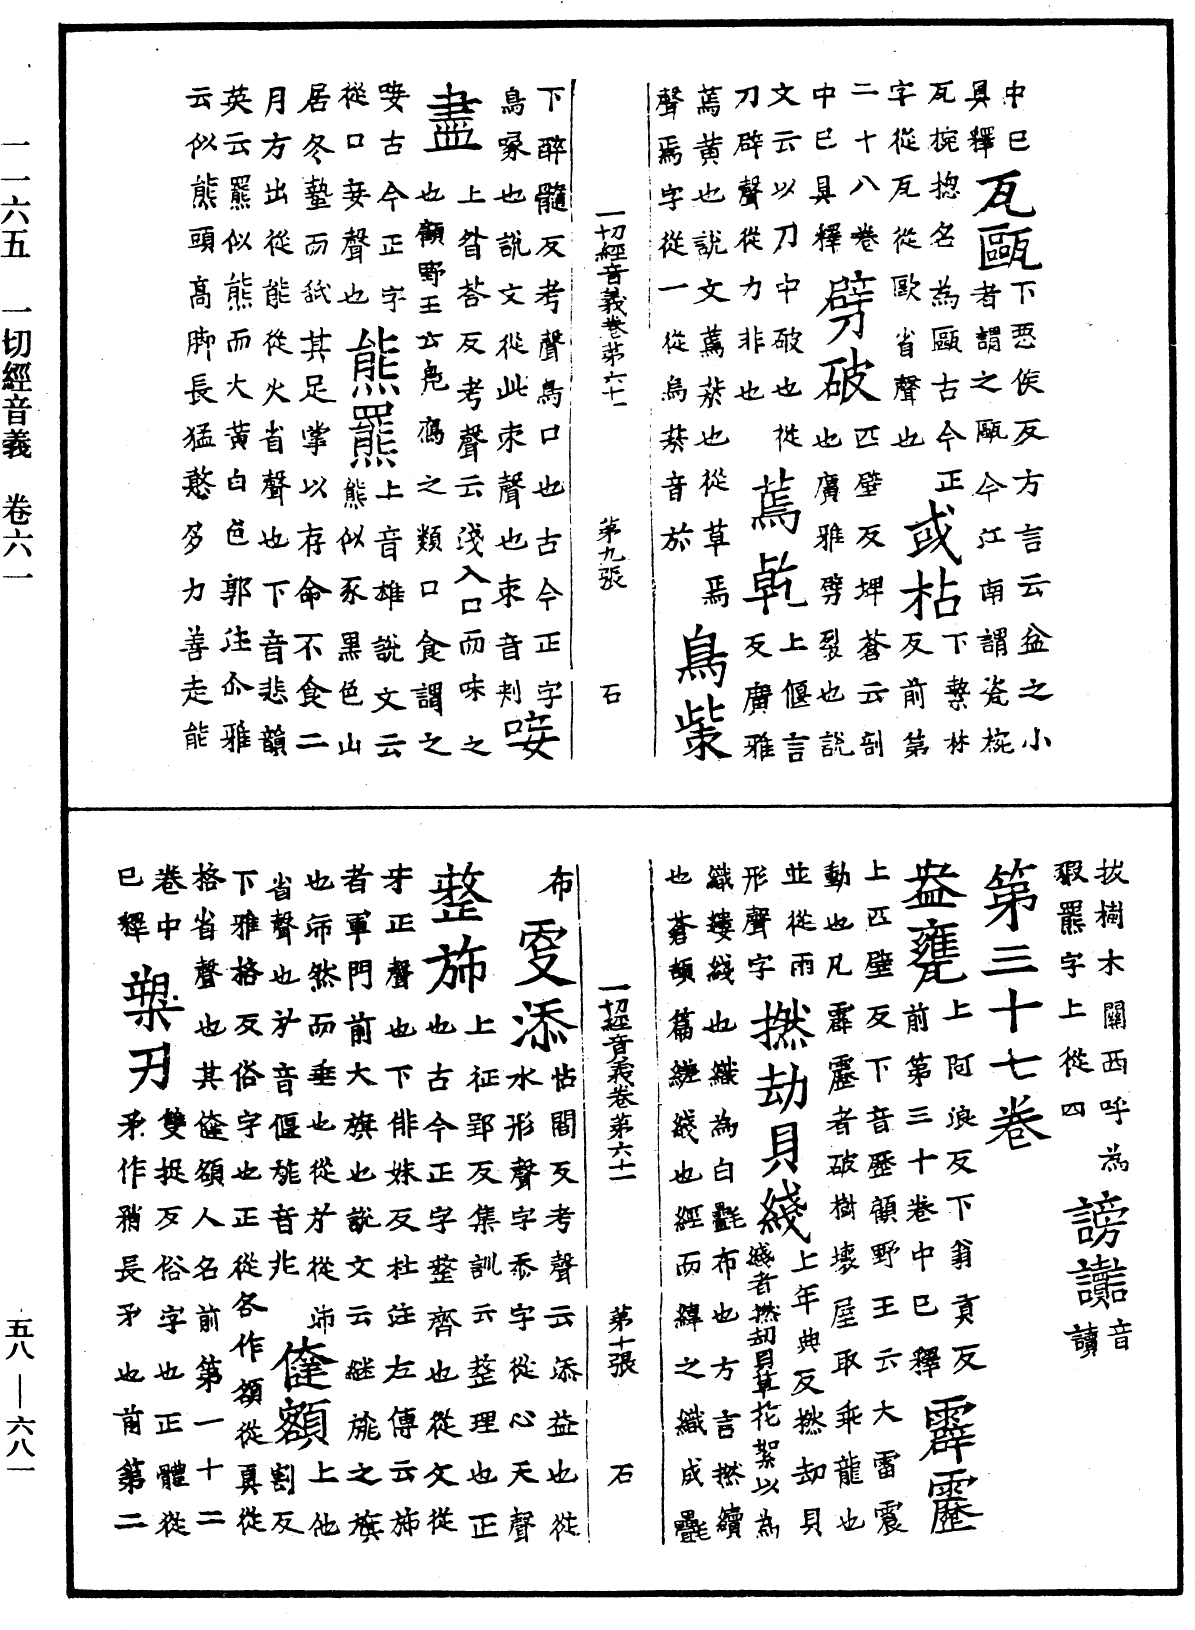 中巳
具釋
瓦甌
下惡侯反方言云盆之小
者謂之甌今江南謂瓷椀
瓦椀揔名為甌古今正
字從瓦從歐省聲也
或枯
下禁林
反前第
二十八卷
中巳具釋
劈破
匹壁反埤蒼云剖
也廣雅劈裂也說
文云以刀中破也從
刀辟聲從力非也
蔫乹
上偃言
反廣雅
蔫黃也說文蔫菸也從草焉
聲焉字從一從烏菸音於
鳥㭰
一切經音義卷第六十一 第九張 石
下醉髓反考聲鳥口也古今正字
鳥喙也說文從此朿聲也朿音刾
唼
盡
上咠荅反考聲云淺入口而味之
也顧野王云鳧鴈之類口食謂之
唼古今正字
從口妾聲也
熊羆
上音雄說文云
熊似豕黑色山
居冬蟄而䑛其足掌以存命不食二
月方出從能從火省聲也下音悲韻
英云羆似熊而大黃白色郭注尒雅
云似熊頭高脚長猛憨多力善走能
拔樹木關西呼為
猳羆字上從四
謗讟
音
讀
第三十七卷
盎甕
上阿浪反下翁貢反
前第三十卷中巳釋
霹靂
上匹壁反下音歷顧野王云大雷震
動也凡霹靂者破樹壞屋取乖龍也
並從雨
形聲字
撚劫貝綫
上年典反撚劫貝
綫者撚劫貝草花絮以為
織縷綫也織為白㲲布也方言撚續
也蒼頡篇縫綫也經而緯之織成㲲
一切經音義卷第六十一 第十張 石
布
㕠添
怗閻反考聲云添益也從
水形聲字忝字從心天聲
整斾
上征郢反集訓云整理也正
也古今正字整齊也從文從
束正聲也下俳妹反杜注左傳云斾
者軍門前大旗也說文云繼旐之旗
也沛然而垂也從㫃從巿
省聲也㫃音偃旐音兆
䔇額
上他
割反
下雅格反俗字也正從各作頟從頁從
格省聲也其䔇頟人名前第一十二
卷中
巳釋
槊刃
雙捉反俗字也正體從
矛作矟長矛也前第二
一一六五 一切經音義 卷六一
五八—六八一